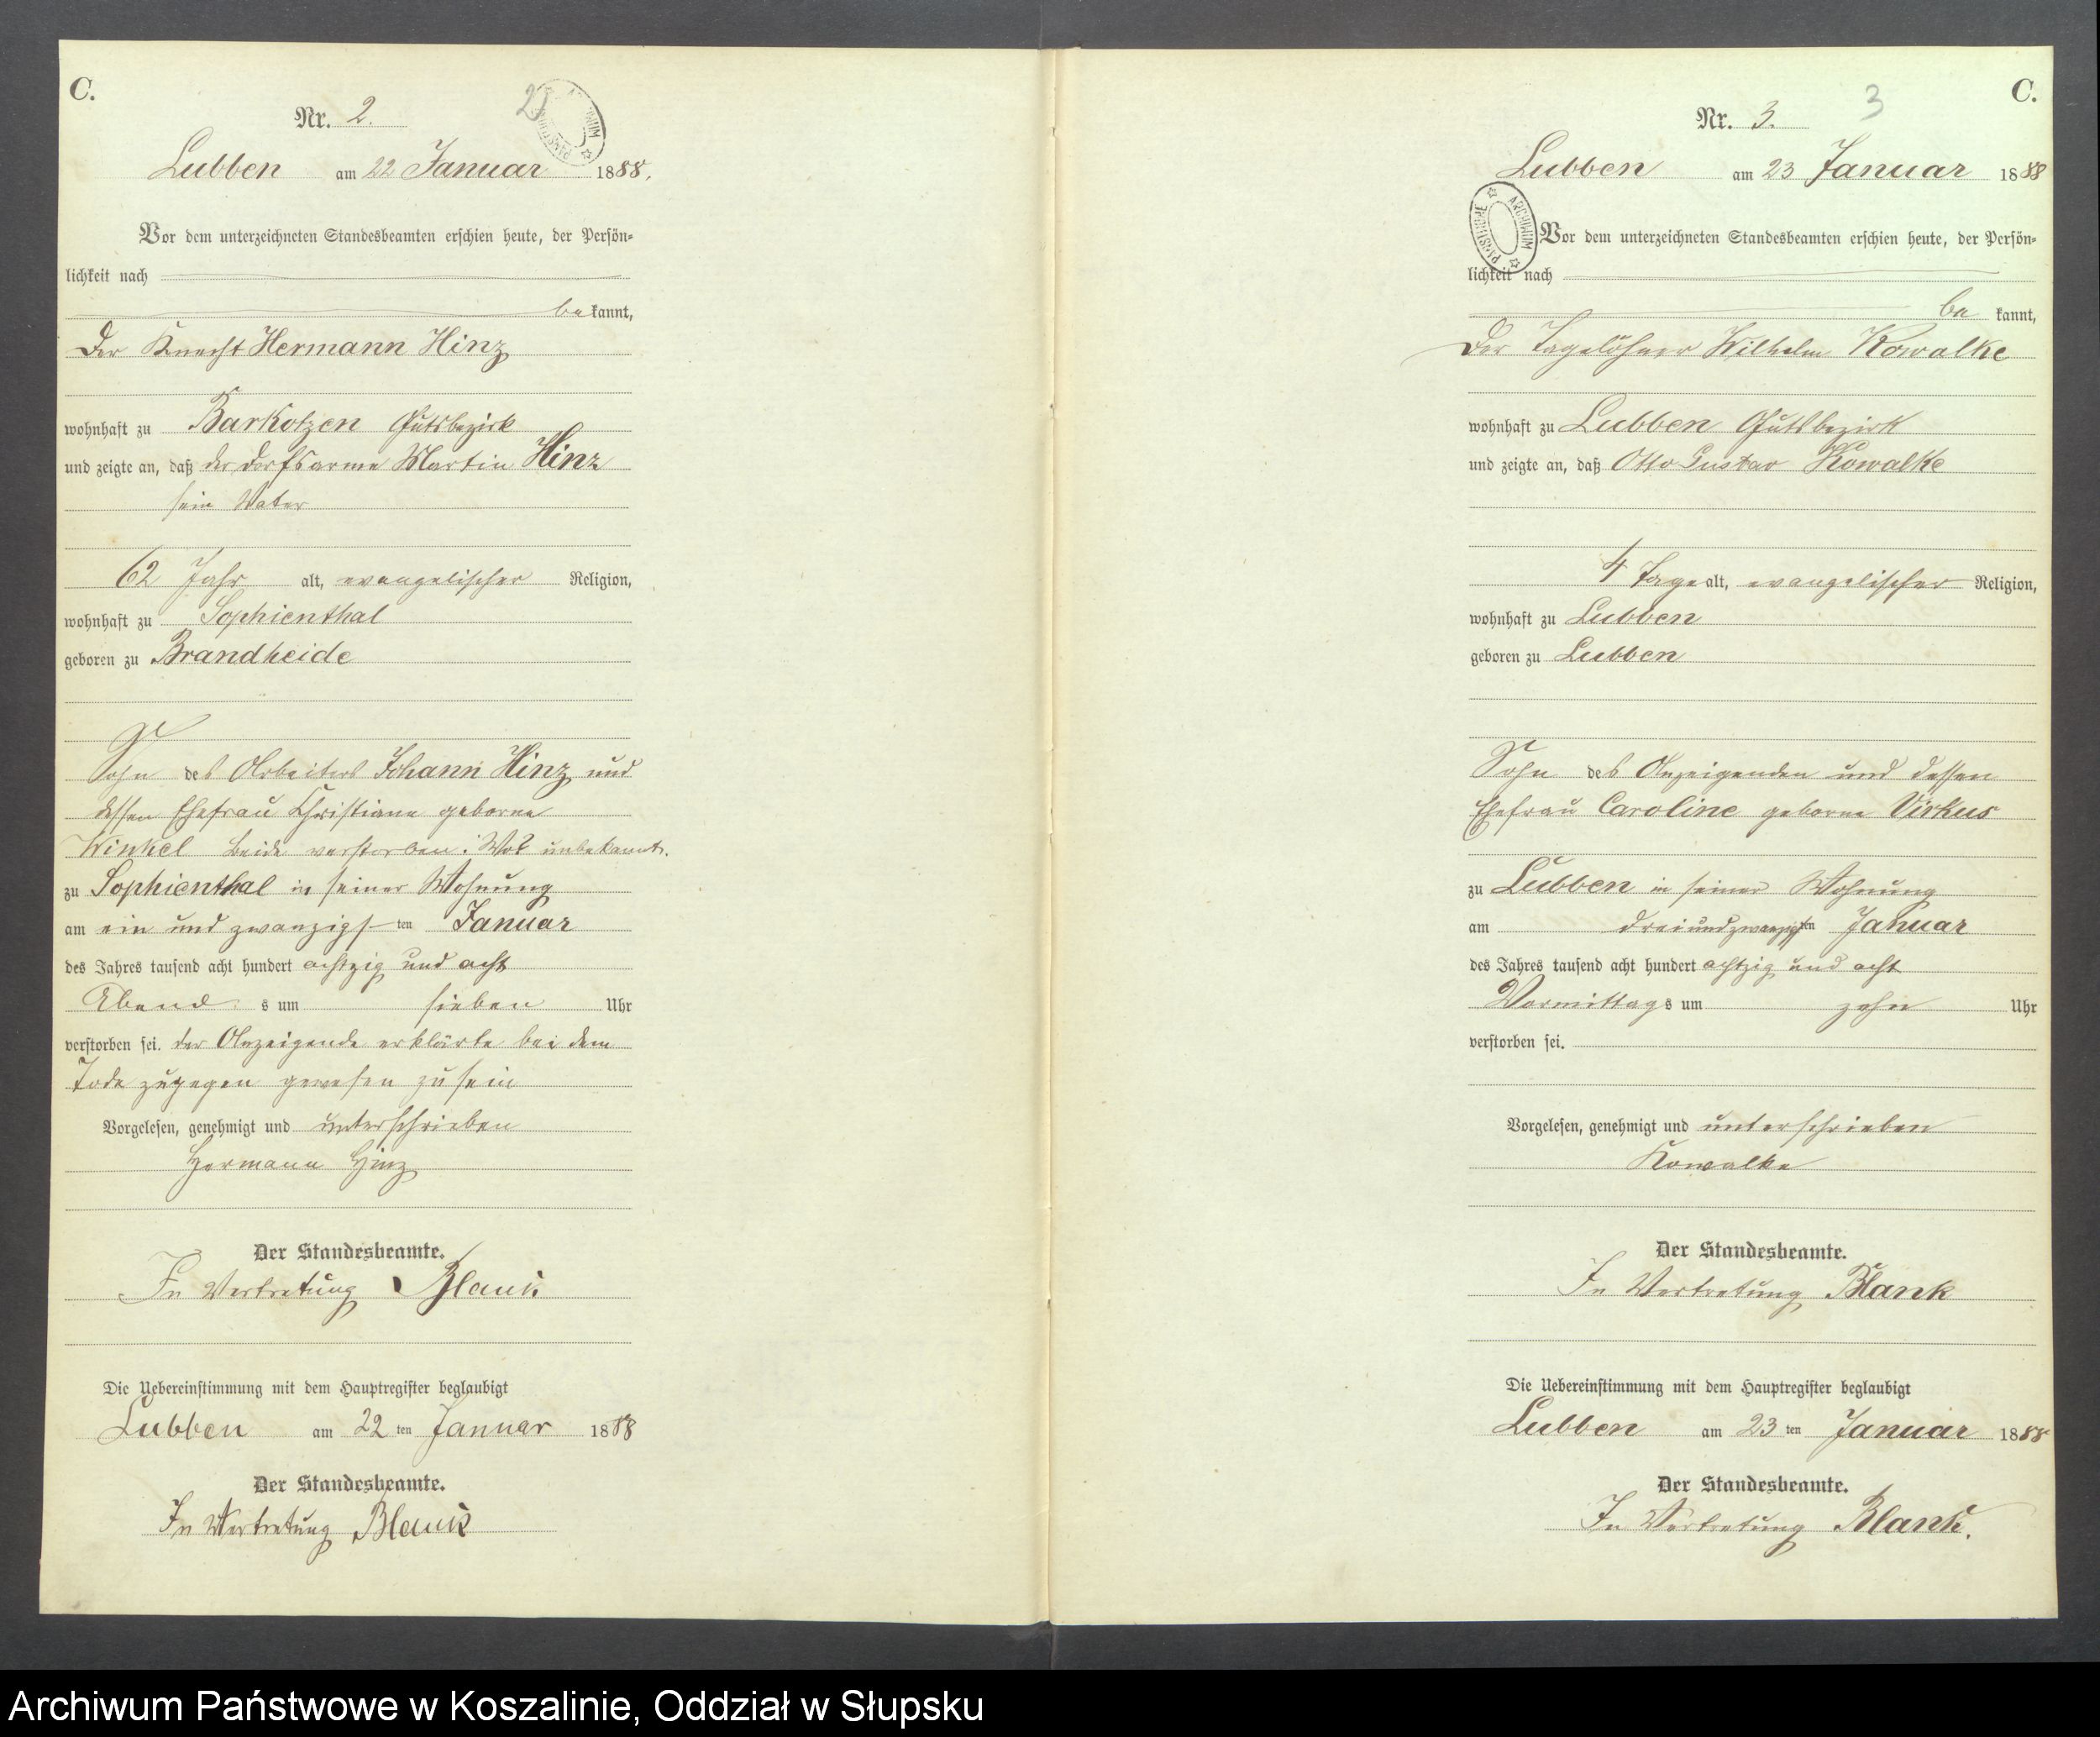 C.
Nr. 2.
2
Lubben am 22 Januar 1888.
Vor dem unterzeichneten Standesbeamten erschien heute, der Persön-
lichkeit nach
bekannt,
Der Knecht Hermann Hinz
wohnhaft zu Barkotzen Gutsbezirk
und zeigte an, daß der Dorfsarme Martin Hinz
sein Vater
62 Jahr alt, evangelischer Religion,
wohnhaft zu Sophienthal
geboren zu Brandheide
Sohn des Arbeiters Johann Hinz und
dessen Ehefrau Christiane geborne
Winkel beide verstorben. Wo? unbekannt.
zu Sophienthal in seiner Wohnung
am ein und zwanzigsten Januar
des Jahres tausend acht hundert achtzig und acht
Abends um sieben Uhr
verstorben sei. der Anzeigende erklärte bei dem
Tode zugegen gewesen zu sein
Vorgelesen, genehmigt und unterschrieben
Hermann Hinz
Der Standesbeamte.
In Vertretung Blank
Die Uebereinstimmung mit dem Hauptregister beglaubigt
Lubben am 22 ten Januar 1888
Der Standesbeamte.
In Vertretung Blank
C.
Nr. 3.
3
Lubben am 23 Januar 1888
ARCHIWUM PAŃSTWOWE
Vor dem unterzeichneten Standesbeamten erschien heute, der Persön-
lichkeit nach
be kannt,
Der Tagelöhner Wilhelm Kowalke
wohnhaft zu Lubben Gutsbezirk
und zeigte an, daß Otto Gustav Kowalke
4 Tage alt, evangelischer Religion,
wohnhaft zu Lubben
geboren zu Lubben
Sohn des Anzeigenden und dessen
Ehefrau Caroline geborne Virkus
zu Lubben in seiner Wohnung
am dreiundzwanzigsten Januar
des Jahres tausend acht hundert achtzig und acht
Vormittags um zehn Uhr
verstorben sei.
Vorgelesen, genehmigt und unterschrieben
Kowalke
Der Standesbeamte.
In Vertretung Blank
Die Uebereinstimmung mit dem Hauptregister beglaubigt
Lubben am 23 ten Januar 1888
Der Standesbeamte.
In Vertretung Blank.
Archiwum Państwowe w Koszalinie, Oddział w Słupsku